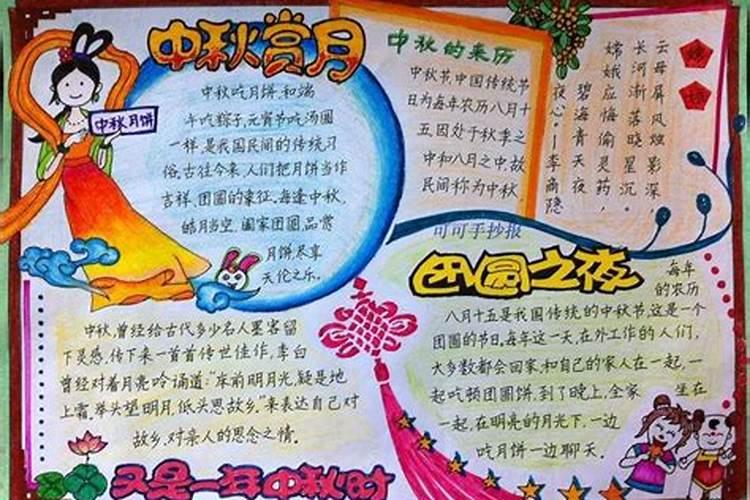 中秋赏月
中秋月饼
中秋吃月饼,和端
午吃粽子,元宵节吃汤圆
一样,是我国民间的传统习
俗,古往今来,人们把月饼当作
吉祥,团圆的象征,每逢中秋,
皓月当空,阖家团圆,品赏
月饼尽享
天伦之乐。
中秋的来历
中秋节中国传统节
日为每年农历八月十
五,因处于秋季之
中和八月之中,故
民间称为中秋
嫦娥
云母屏风烛影深,
长河渐落晓星沉。
嫦娥应悔偷灵药,
碧海青天夜
夜心。——李商隐
可可手抄报
团圆之夜
每年
的农历
八月十五是我国传统的中秋节,这是一个
团圆的节日,每年这一天,在外工作的人们,
大多数都会回家,和自己的家人在一起,一
起吃顿团圆饼,到了晚上,全家 坐在
一起,在明亮的月光下,一边
吃月饼一边聊天。
中秋,曾经给古代多少名人墨客留
下灵感,传下来一首首传世佳作,李白
曾经对着月亮吟诵道:"床前明月光,疑是地
上霜,举头望明月,低头思故乡。"来表达自己对
故乡,对亲人的思念之情。
又是一年中秋时